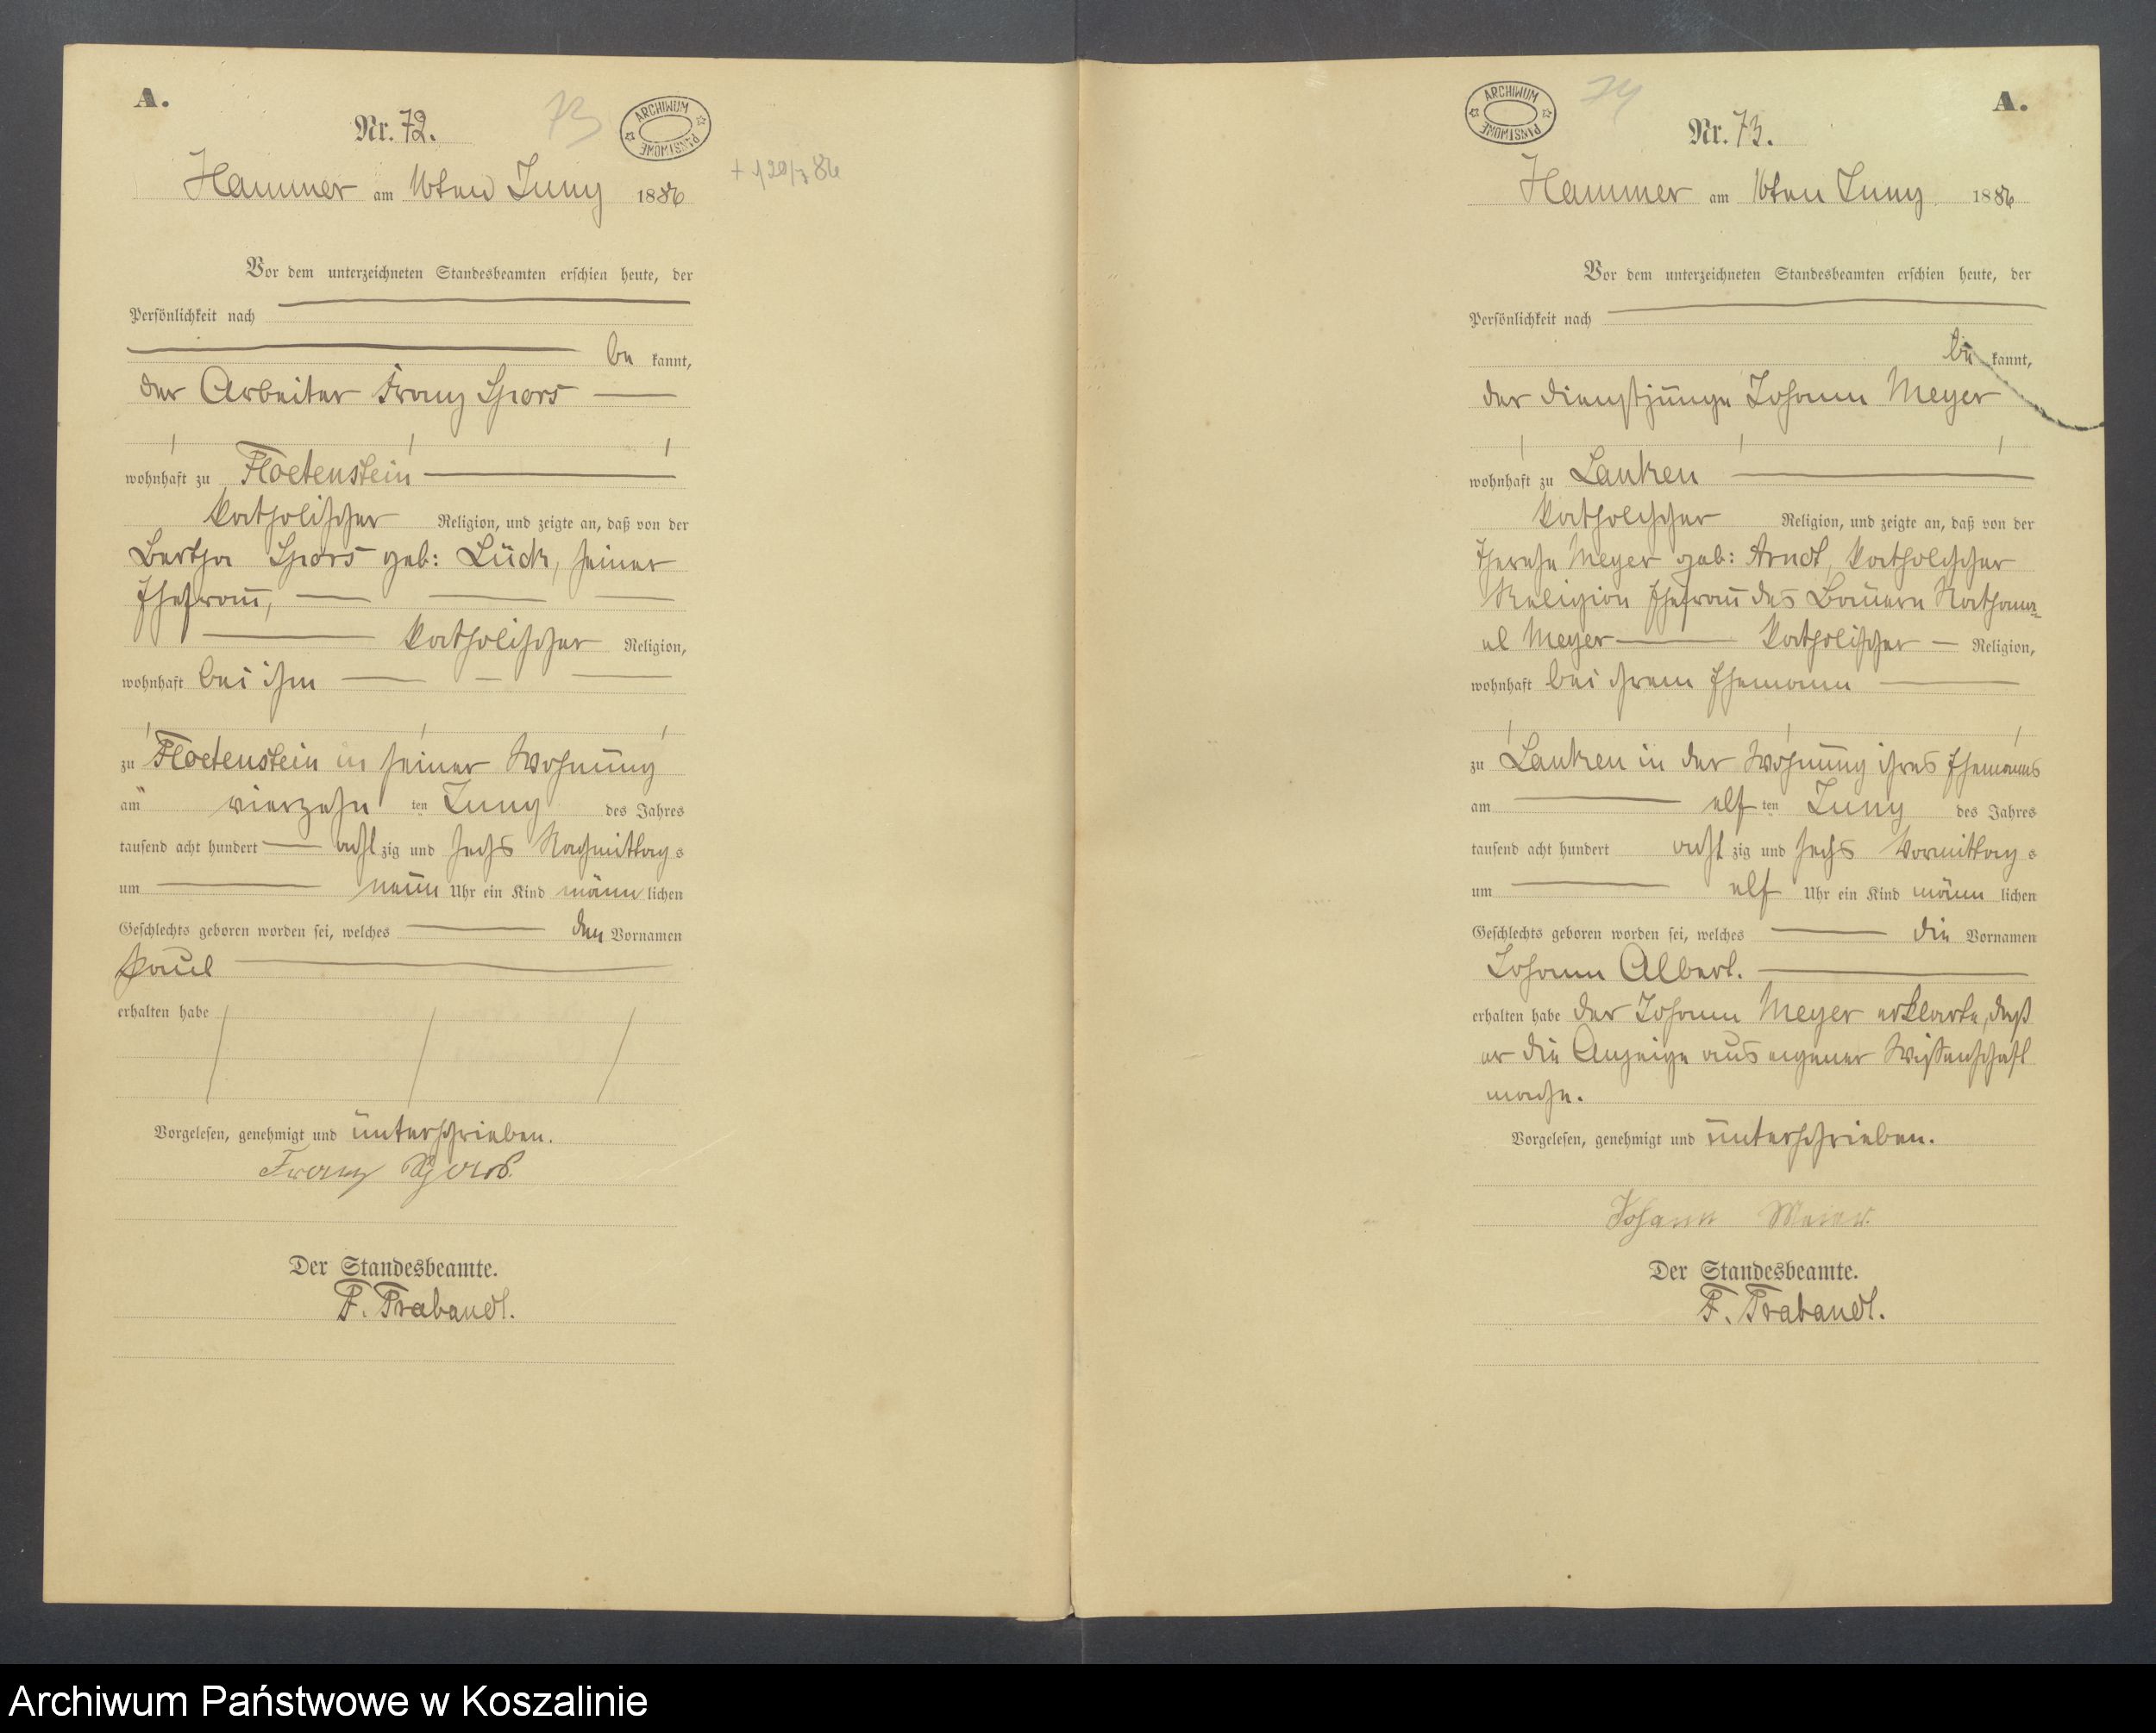 A.
Nr. 72.
73
ARCHIWUM PAŃSTWOWE
Hammer am 16ten Juny 1886
Vor dem unterzeichneten Standesbeamten erschien heute, der
Persönlichkeit nach
be kannt,
der Arbeiter Franz Spors
wohnhaft zu Floetenstein
katholischer Religion, und zeigte an, daß von der
Bertha Spors geb: Lück, seiner
Ehefrau,
katholischer Religion,
wohnhaft bei ihm
zu Floetenstein in seiner Wohnung
am vierzehn ten Juny des Jahres
tausend acht hundert acht zig und sechs Nachmittag s
um neun Uhr ein Kind männ lichen
Geschlechts geboren worden sei, welches den Vornamen
Paul
erhalten habe
Vorgelesen, genehmigt und unterschrieben.
Franz Spors.
Der Standesbeamte.
F. Trabandt.
A.
Nr. 73.
74
ARCHIWUM PAŃSTWOWE
Hammer am 16ten Juny 1886
Vor dem unterzeichneten Standesbeamten erschien heute, der
Persönlichkeit nach
be kannt,
der Dienstjunge Johann Meyer
wohnhaft zu Lanken
katholischer Religion, und zeigte an, daß von der
Therese Meyer geb: Arndt, katholischer
Religion Ehefrau des Bauern Nathana=
el Meyer katholischer Religion,
wohnhaft bei ihrem Ehemann
zu Lanken in der Wohnung ihres Ehemanns
am elf ten Juny des Jahres
tausend acht hundert acht zig und sechs Vormittag s
um elf Uhr ein Kind männ lichen
Geschlechts geboren worden sei, welches die Vornamen
Johann Albert.
erhalten habe der Johann Meyer erklarte, daß
er die Anzeige aus eigener Wissenschaft
mache.
Vorgelesen, genehmigt und unterschrieben.
Johann Meier.
Der Standesbeamte.
F. Trabandt.
Archiwum Państwowe w Koszalinie